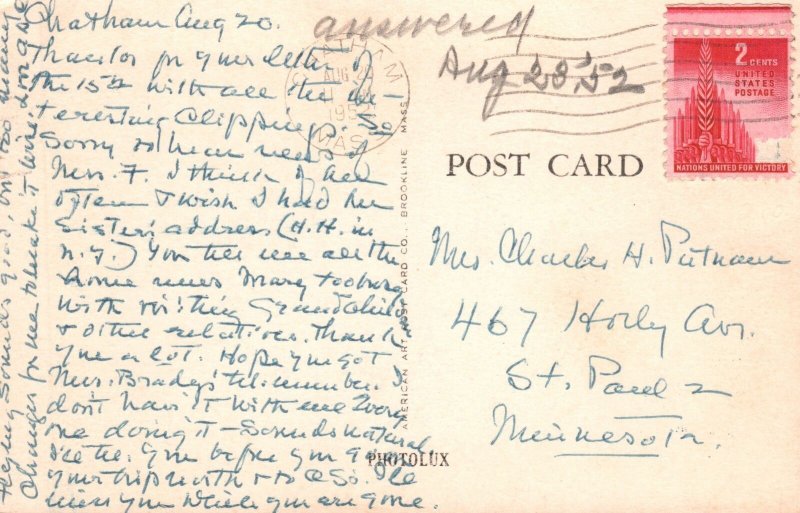 Chatham Aug 20.
Thanks for your letter of
the 15th with all the in-
teresting Clippings. So
Sorry to hear news of
Mrs. F. I think of her
often & wish I had her
Sister's address (H.H. in
N.Y.) You tell me all the
home news Mary too busy
with visiting Grandchild
& other relatives. Thank
you a lot. Hope you got
Mrs. Brady's tel. number. I
don't have it with me
one doing it – Sounds natural
see the. you before you go on
your trip north & to
miss you while you are gone.
Flying sounds good, but too many
changes for me to make it
answered
Aug 23 '52
CHATHAM
AUG 2
MASS
2 CENTS
UNITED
STATES
POSTAGE
NATIONS UNITED FOR VICTORY
POST CARD
Mrs. Charles H. Putnam
467 Holly Ave.
St. Paul 2
Minnesota.
AMERICAN ART POST CARD CO., BROOKLINE, MASS.
PHOTOLUX